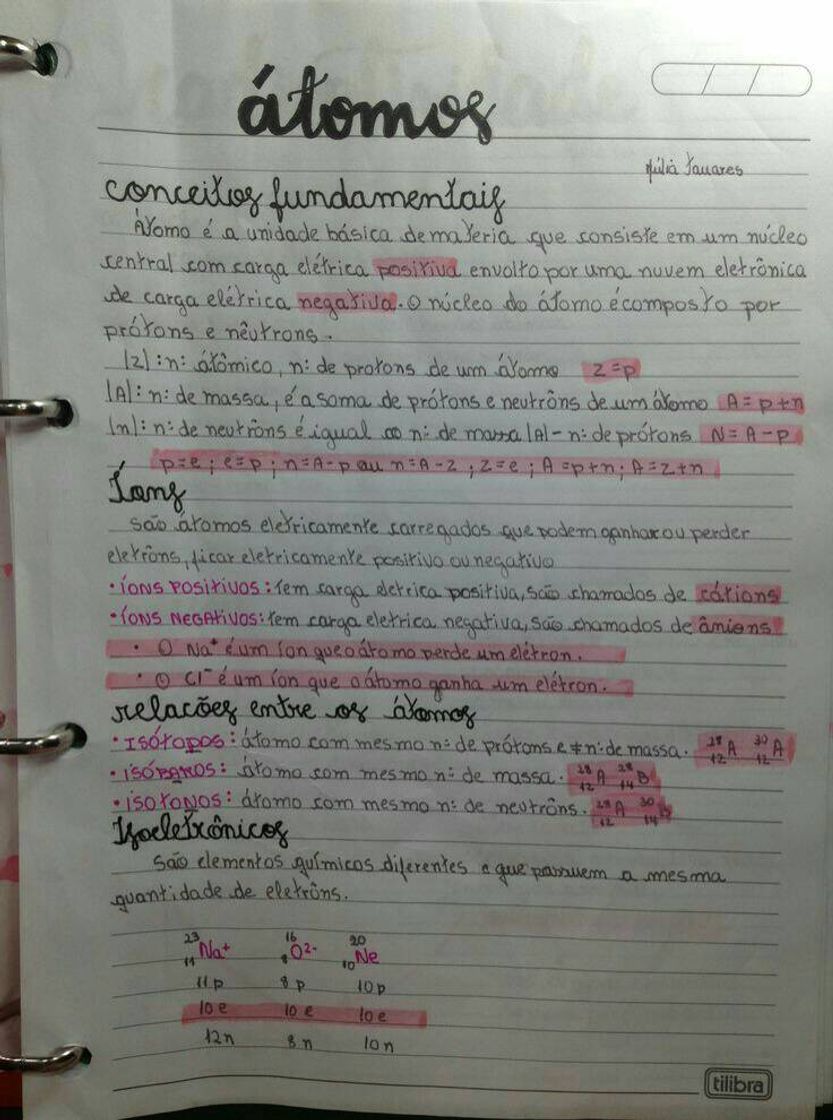 átomos
Júlia Tavares
conceitos fundamentais
Átomo é a unidade básica de materia que consiste em um núcleo
central com carga elétrica positiva envolto por uma nuvem eletrônica
de carga elétrica negativa. O núcleo do átomo é composto por
prótons e nêutrons.
|Z|: nº atômico, nº de protons de um átomo Z=p
|A|: nº de massa, é a soma de prótons e neutrôns de um átomo A = p+n
|n|: nº de neutrôns é igual ao nº de massa |A| - nº de prótons N = A - p
p=e ; e=p ; n=A-p ou n=A-Z ; Z=e ; A=p+n ; A=z+n
Íons
são átomos eletricamente carregados que podem ganhar ou perder
eletrôns, ficar eletricamente positivo ou negativo
• ÍONS POSITIVOS: tem carga eletrica positiva, são chamados de cátions
• ÍONS NEGATIVOS: tem carga eletrica negativa, são chamados de ânions
• O Na⁺ é um íon que o átomo perde um elétron.
• O Cl⁻ é um íon que o átomo ganha um elétron.
relacões entre os átomos
• ISÓTOPOS: átomo com mesmo nº de prótons e ≠ nº de massa. ²⁸₁₂A ³⁰₁₂A
• ISÓBAROS: átomo com mesmo nº de massa. ²⁸₁₂A ²⁸₁₄B
• ISOTONOS: átomo com mesmo nº de neutrôns. ²⁸₁₂A ³⁰₁₄B
Isoeletrônicos
são elementos químicos diferentes e que possuem a mesma
quantidade de eletrôns.
²³₁₁Na⁺ ¹⁶₈O²⁻ ²⁰₁₀Ne
11p 8p 10p
10e 10e 10e
12n 8n 10n
tilibra